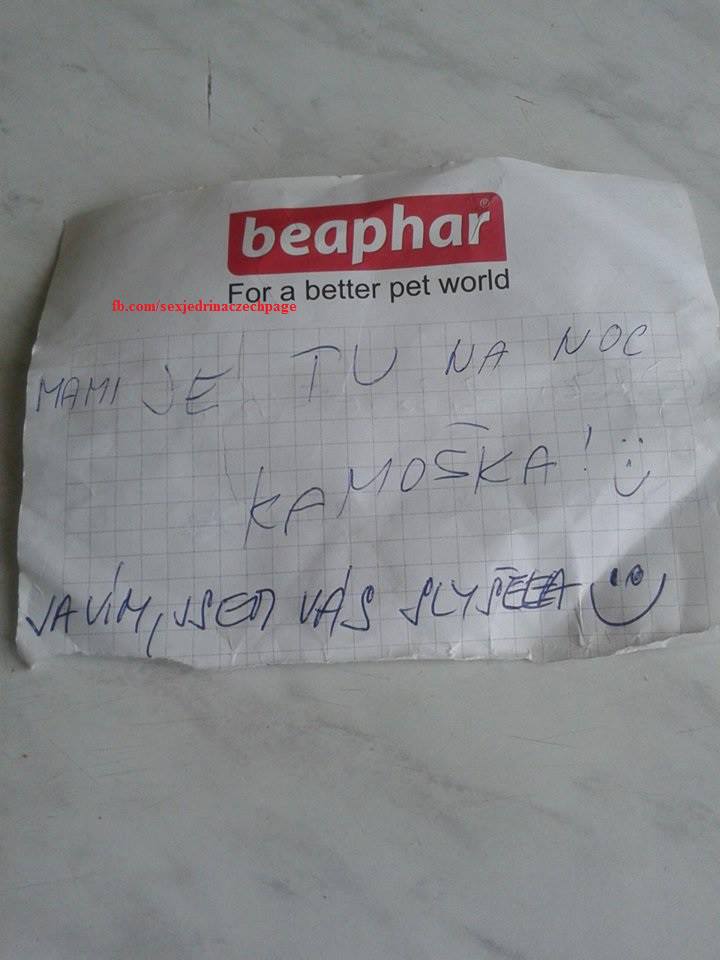 beaphar®
For a better pet world
fb.com/sexjedrinaczechpage
MAMI JE TU NA NOC
KAMOŠKA! :)
JA VÍM, JSEM VÁS SLYŠELA :)